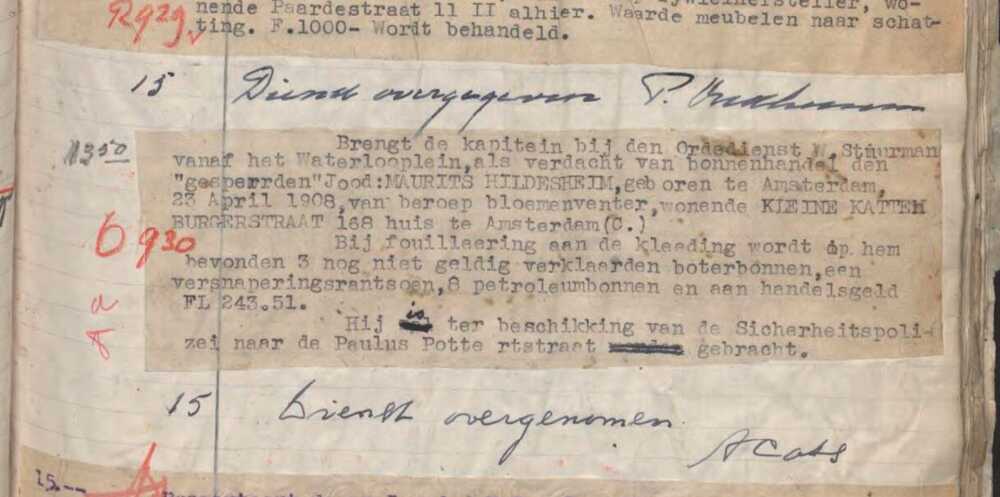 nende Paardestraat 11 II alhier. Waarde meubelen naar schat-
R929 ting. F.1000- Wordt behandeld.
15 Dienst overgegeven P.
1350 Brengt de kapitein bij den Ordedienst W. Stuurman
vanaf het Waterlooplein, als verdacht van bonnenhandel den
"gesperrden"Jood:MAURITS HILDESHEIM,geboren te Amsterdam,
23 April 1908,van beroep bloemenventer,wonende KLEINE KATTEM
BURGERSTRAAT 168 huis te Amsterdam(C.)
6 930 Bij fouilleering aan de kleeding wordt op hem
bevonden 3 nog niet geldig verklaarden boterbonnen,een
versnaperingsrantsoen,8 petroleumbonnen en aan handelsgeld
FL 243.51.
Hij is ter beschikking van de Sicherheitspoli-
zei naar de Paulus Potte rtstraat gebracht.
15 Dienst overgenomen
A Cats
15.--